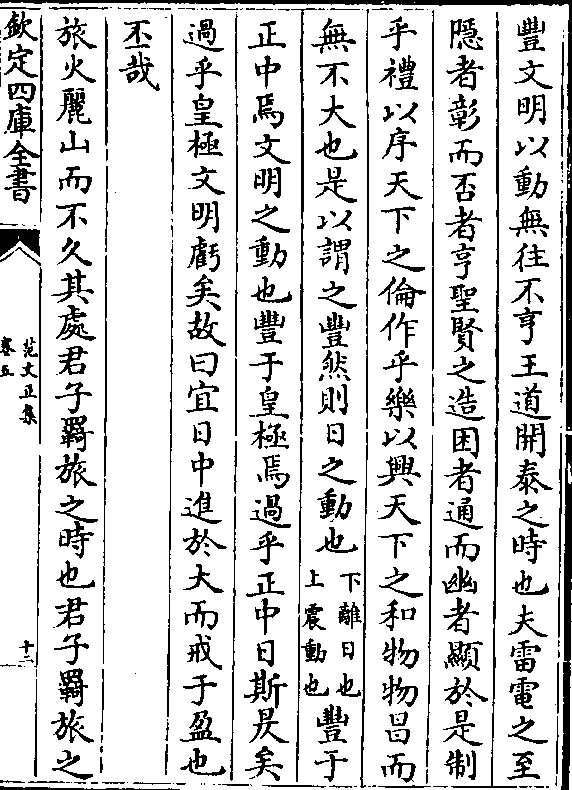 豐文明以動無往不亨王道開泰之時也夫雷電之至
隱者彰而否者亨聖賢之造困者通而幽者顯於是制
乎禮以序天下之倫作乎樂以興天下之和物物昌而
無不大也是以謂之豐然則日之動也下離日也上震動也豐于
正中焉文明之動也豐于皇極焉過乎正中日斯昃矣
過乎皇極文明虧矣故曰宜日中進於大而戒于盈也
丕哉
旅火麗山而不久其處君子羇旅之時也君子羇旅之
欽定四庫全書
范文正集
卷五
十二